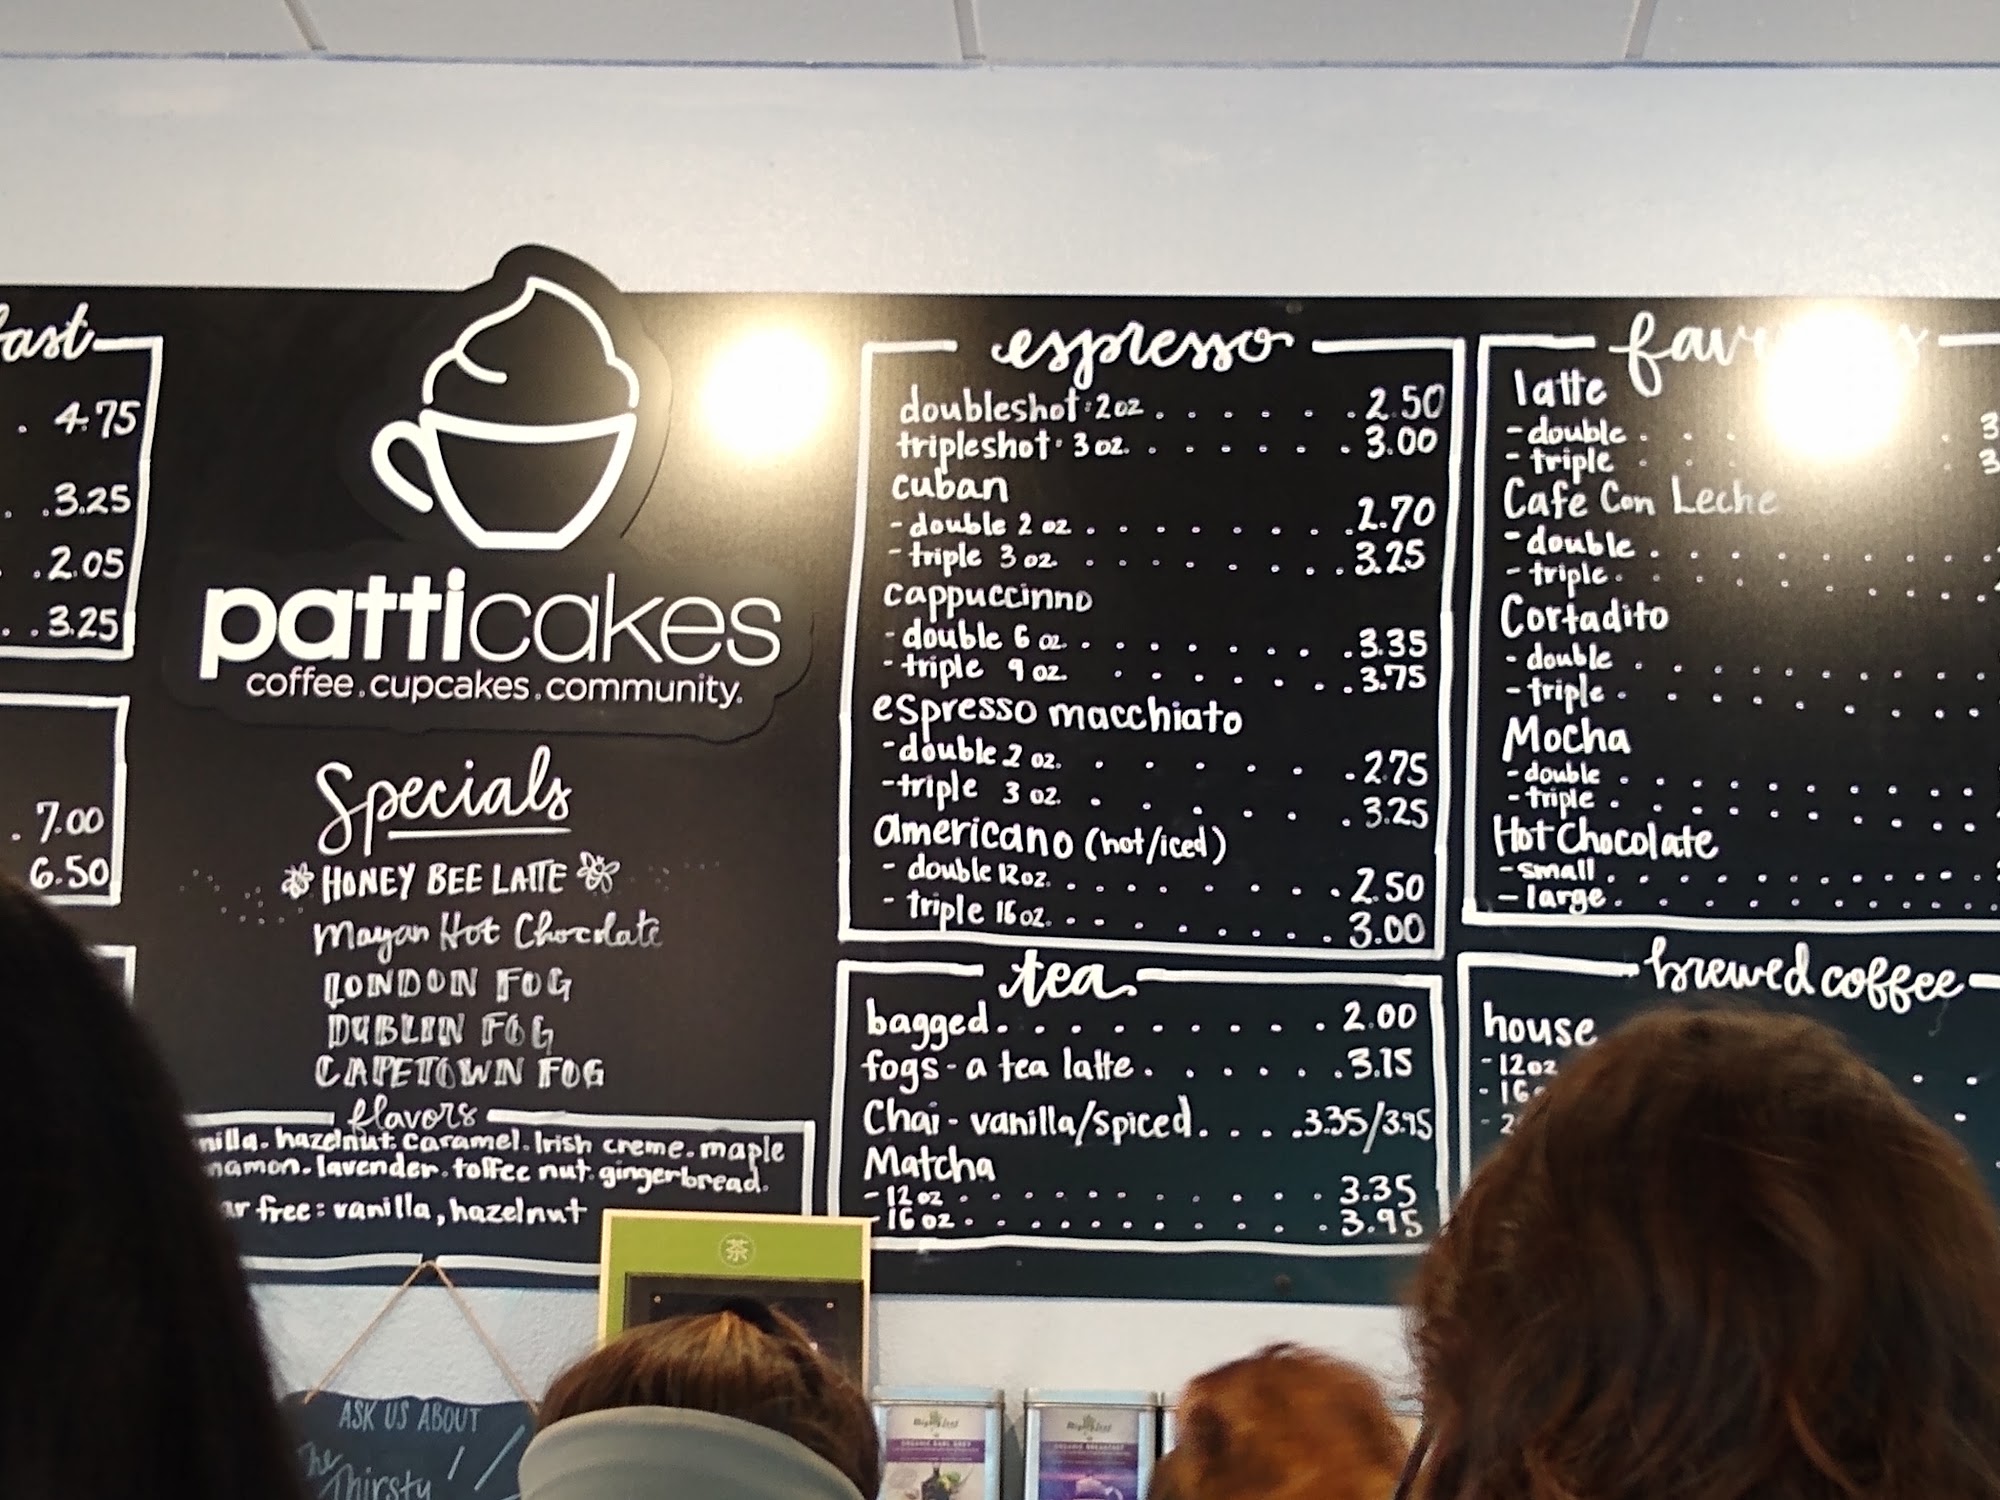 4.75
3.25
2.05
3.25
7.00
6.50
patticakes
coffee.cupcakes.community.
Specials
HONEY BEE LATTE
Mayan Hot Chocolate
LONDON FOG
DUBLIN FOG
CAPETOWN FOG
flavors
hazelnut. caramel. Irish creme. maple
lavender. toffee nut. gingerbread.
free: vanilla, hazelnut
espresso
doubleshot 2oz . . . . . . 2.50
tripleshot 3 oz. . . . . . . 3.00
cuban
- double 2 oz . . . . . . . . 2.70
- triple 3 oz . . . . . . . . 3.25
cappuccinno
- double 6 oz . . . . . . . . 3.35
- triple 9 oz. . . . . . . . 3.75
espresso macchiato
- double 2 oz. . . . . . . 2.75
- triple 3 oz. . . . . . . 3.25
americano (hot/iced)
- double 12oz. . . . . . . . 2.50
- triple 16oz. . . . . . . . 3.00
tea
bagged. . . . . . . . . . 2.00
fogs - a tea latte. . . . . . 3.15
Chai - vanilla/spiced. . . . 3.35/3.95
Matcha
- 12 oz . . . . . . . . . . . 3.35
- 16 oz . . . . . . . . . . . 3.95
latte
- double
- triple
Cafe Con Leche
- double
- triple
Cortadito
- double
- triple
Mocha
- double
- triple
Hot Chocolate
- small
- large
brewed coffee
house
- 12oz
茶
ASK US ABOUT
The
Thirsty
Mighty Leaf
ORGANIC EARL GREY
Mighty Leaf
ORGANIC BREAKFAST